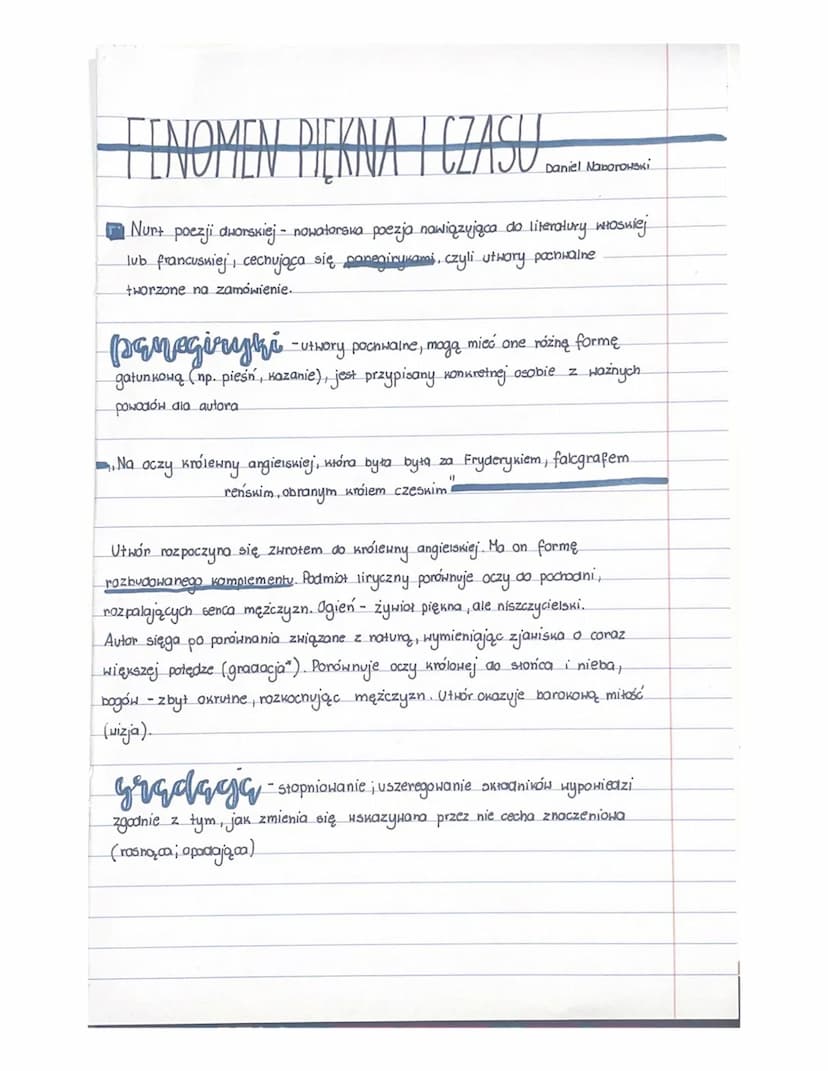 FENOMEN PIĘKNA I CZASU Daniel Naborowski
Nurt poezji dworskiej - nowatorska poezja nawiązująca do literatury włoskiej
lub francuskiej, cechująca się panegirykami, czyli utwory pochwalne
tworzone na zamówienie.
panegiryki - utwory pochwalne, mogą mieć one różną formę
gatunkową (np. pieśń, kazanie), jest przypisany konkretnej osobie z ważnych
powodów dla autora
„Na oczy królewny angielskiej, która była byłą za Fryderykiem, falcgrafem
reńskim, obranym królem czeskim"
Utwór rozpoczyna się zwrotem do królewny angielskiej. Ma on formę
rozbudowanego komplementu. Podmiot liryczny porównuje oczy do pochodni,
rozpalających serca mężczyzn. Ogień - żywioł piękna, ale niszczycielski.
Autor sięga po porównania związane z naturą, wymieniając zjawiska o coraz
większej potędze (gradacja*). Porównuje oczy królowej do słońca i nieba,
bogów - zbyt okrutne, rozkochując mężczyzn. Utwór okazuje barokową miłość
(wizja).
gradacja - stopniowanie; uszeregowanie składników wypowiedzi
zgodnie z tym, jak zmienia się wskazywana przez nie cecha znaczeniowa
(rosnąca; opadająca)